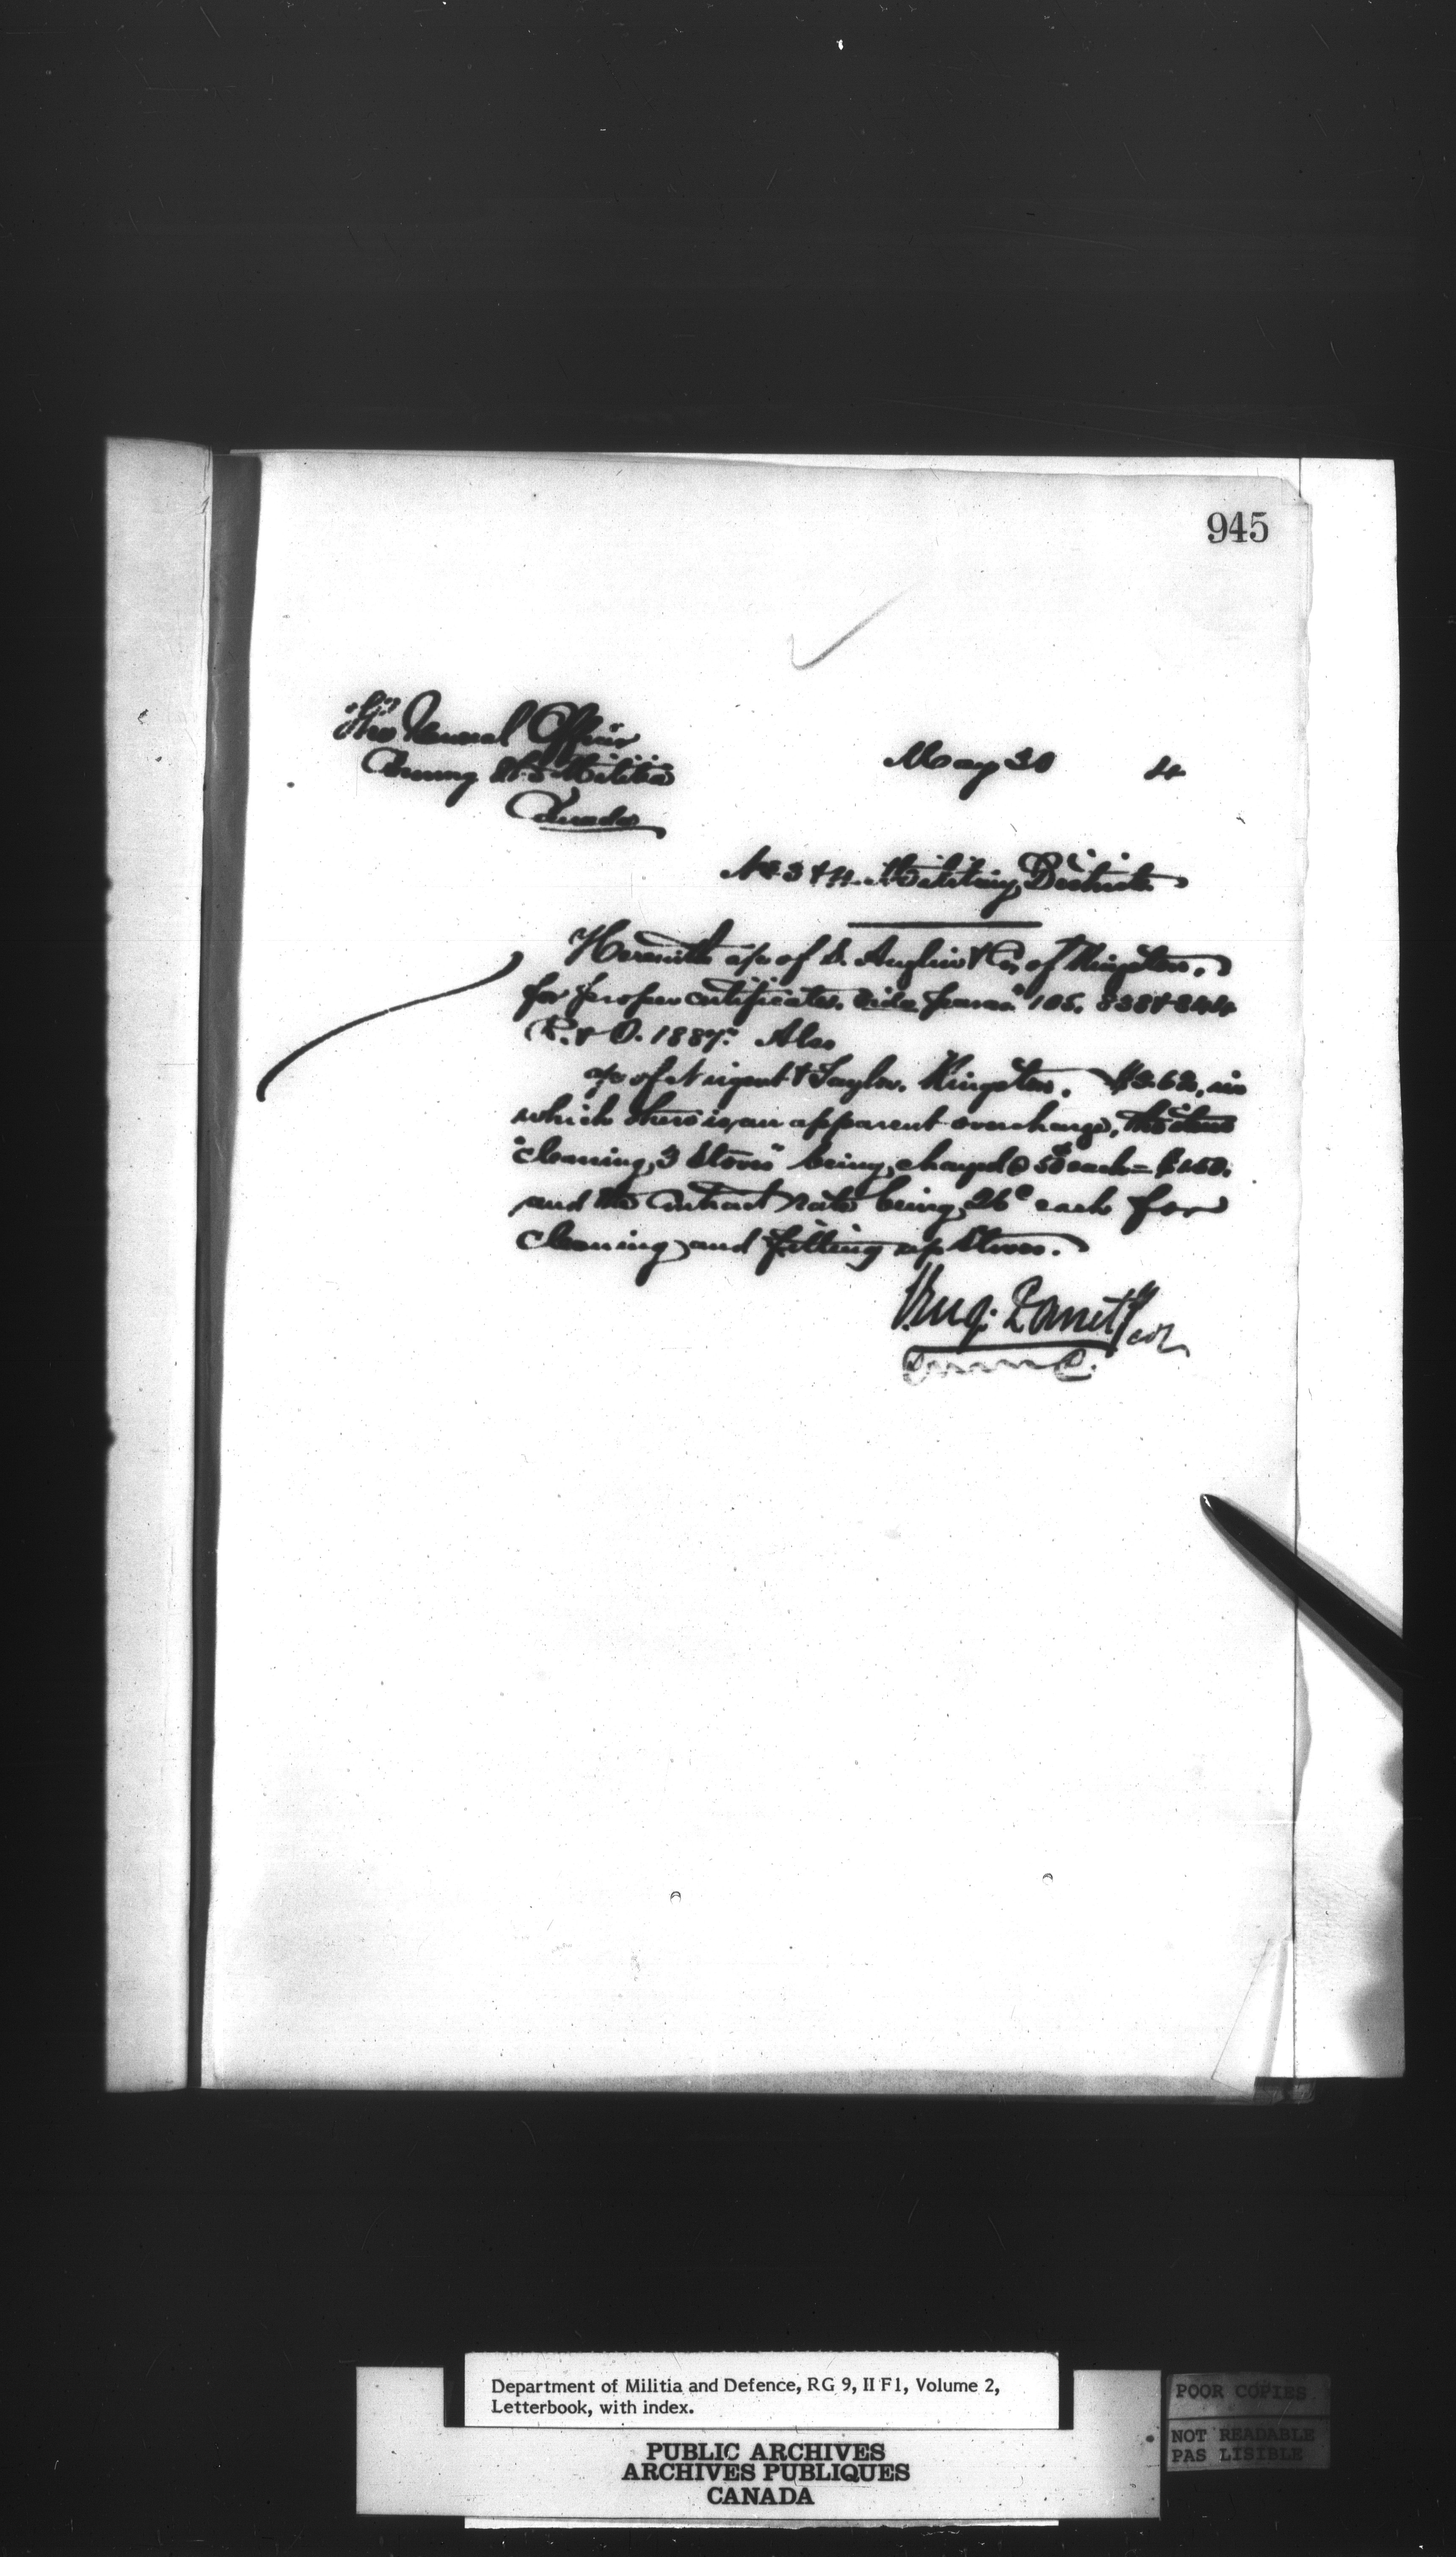 945
The General Officer
Commg the Militia
Canada
May 30 4
No 3 & 4 Military Districts
Herewith a/c of S. Anglin & Co. of Kingston,
for proper certificates. Vide paras 105, 838 & 844
R. & O. 1887. Also
a/c of Nugent & Taylor, Kingston. in
which there is an apparent overcharge, the item
"cleaning 3 Stoves" being charged @ 50 each = $1.50.
and the Contract rate being 26c each for
cleaning and fitting up Stoves.
Panet
Department of Militia and Defence, RG 9, II F1, Volume 2,
Letterbook, with index.
PUBLIC ARCHIVES
ARCHIVES PUBLIQUES
CANADA
POOR COPIES
NOT READABLE
PAS LISIBLE